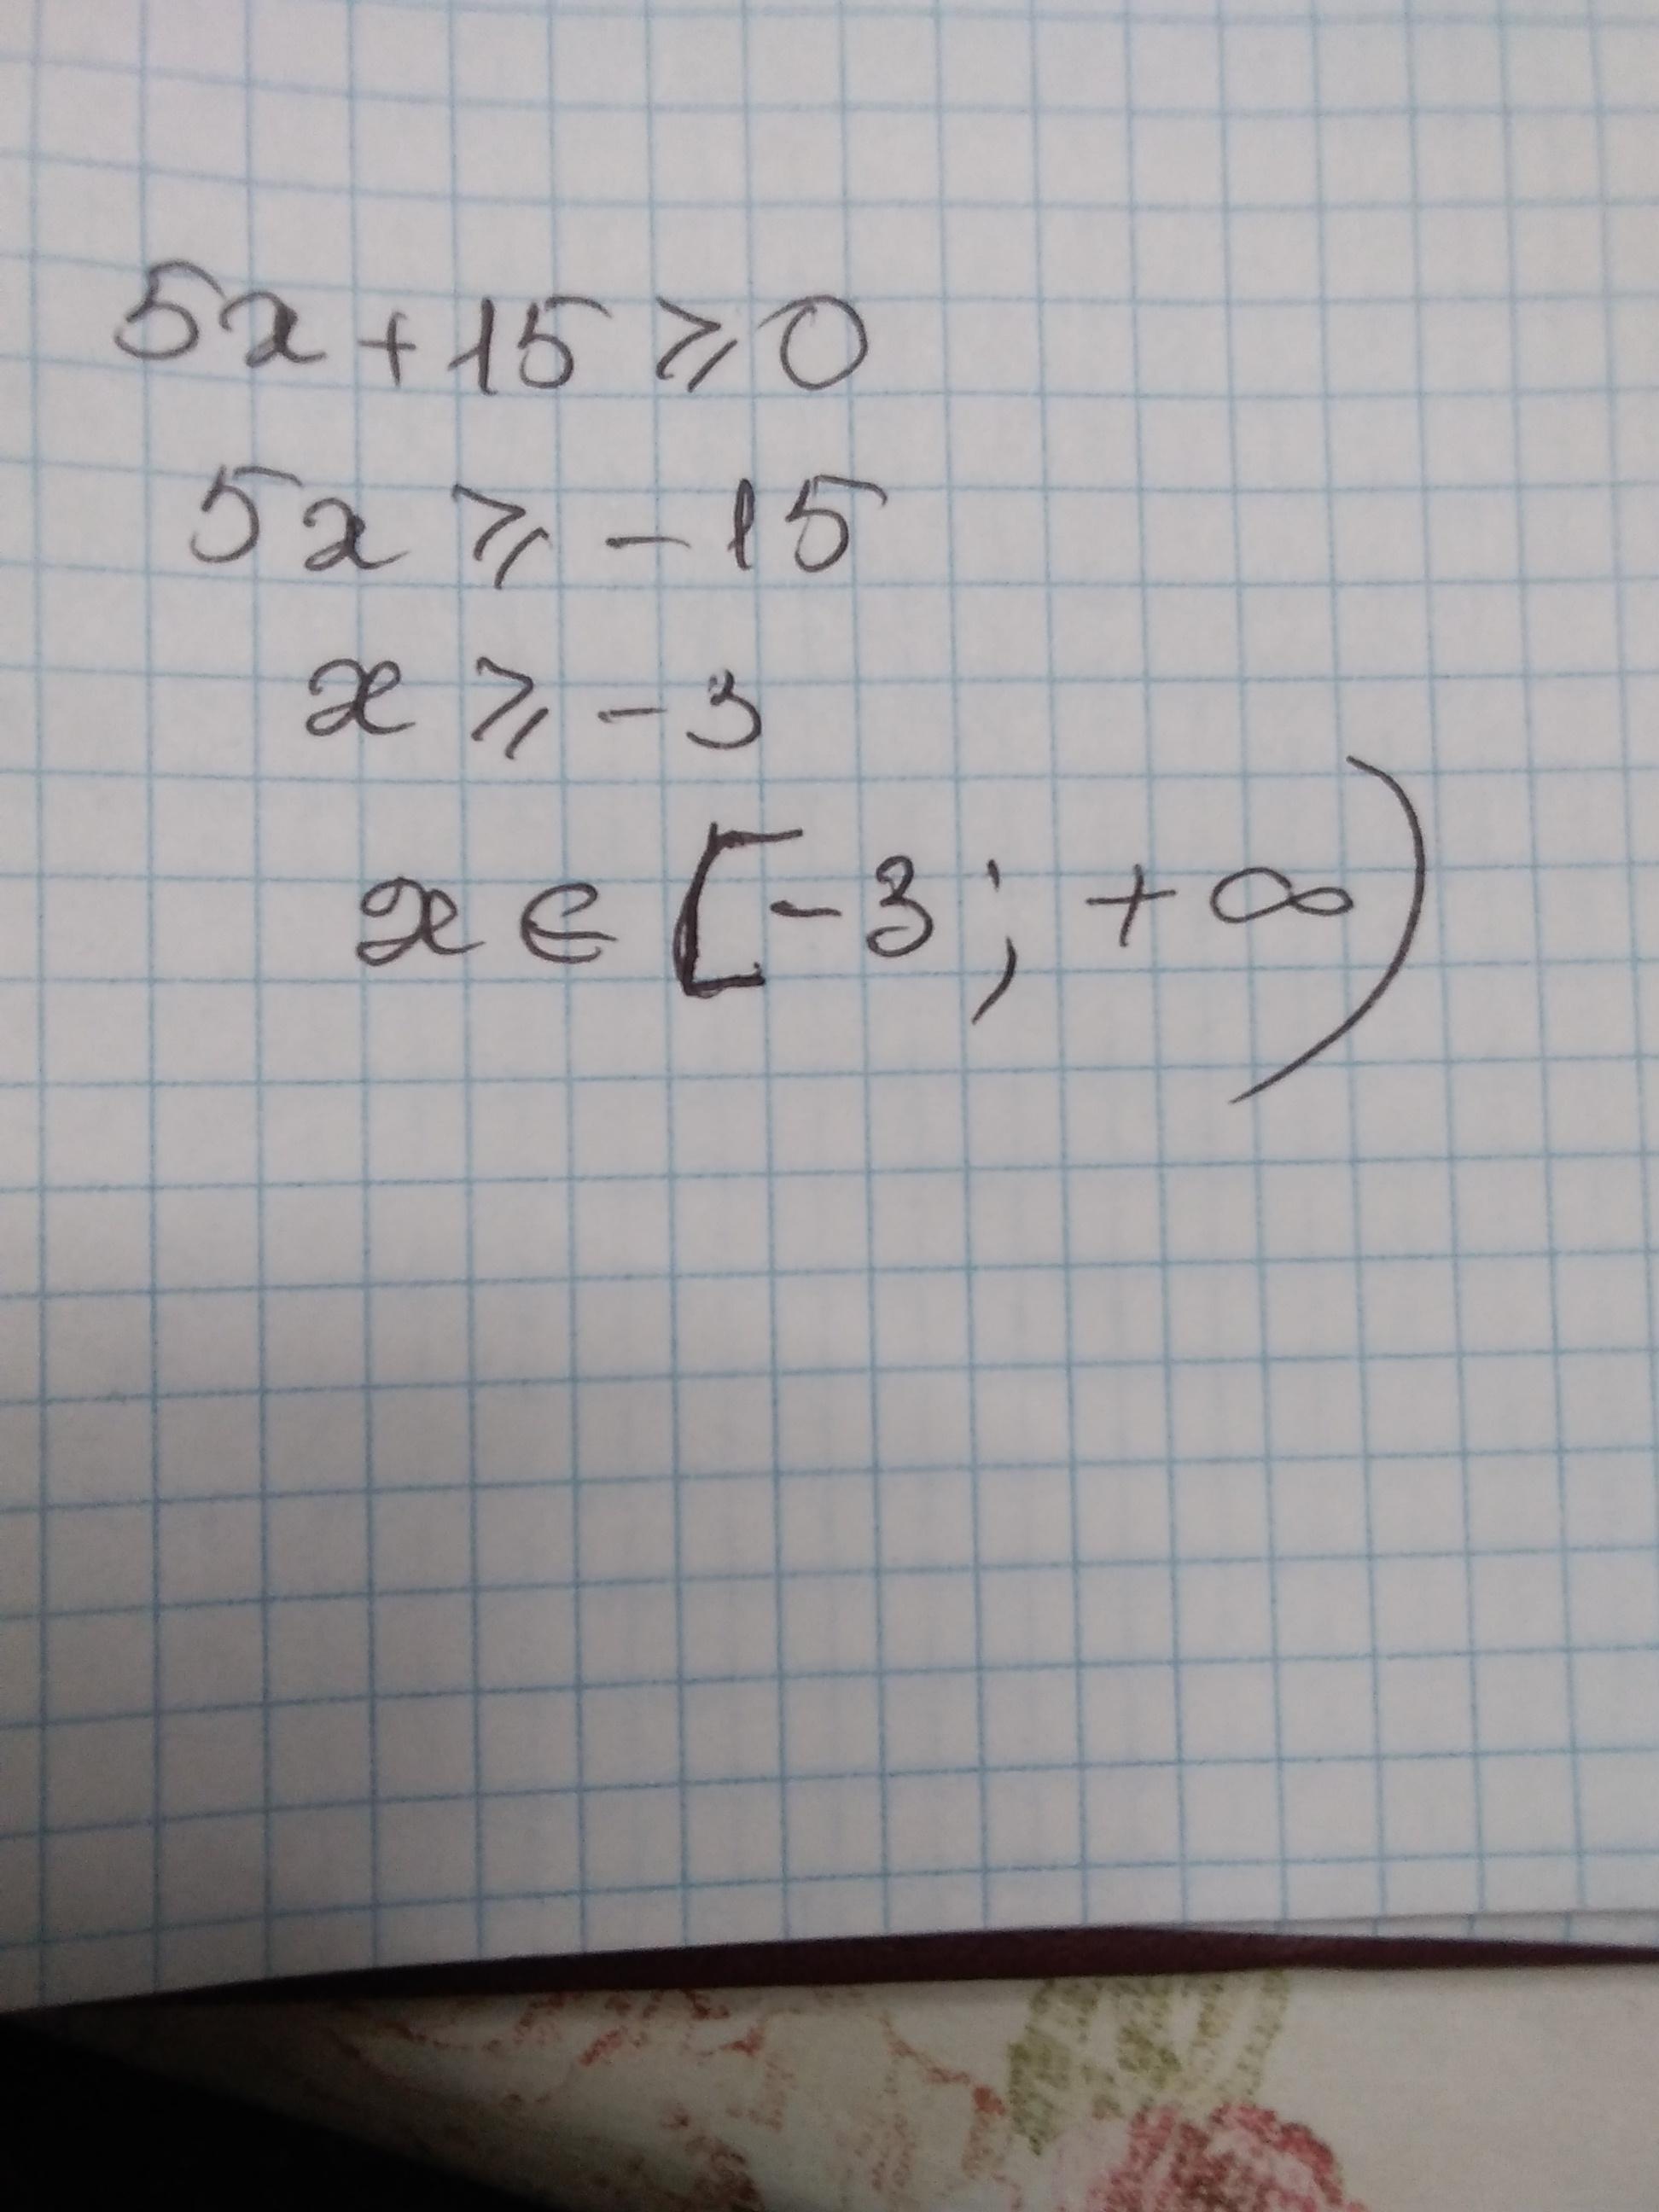 5x + 15 ⩾ 0
5x ⩾ - 15
x ⩾ - 3
x ∈ [- 3 ; + ∞)